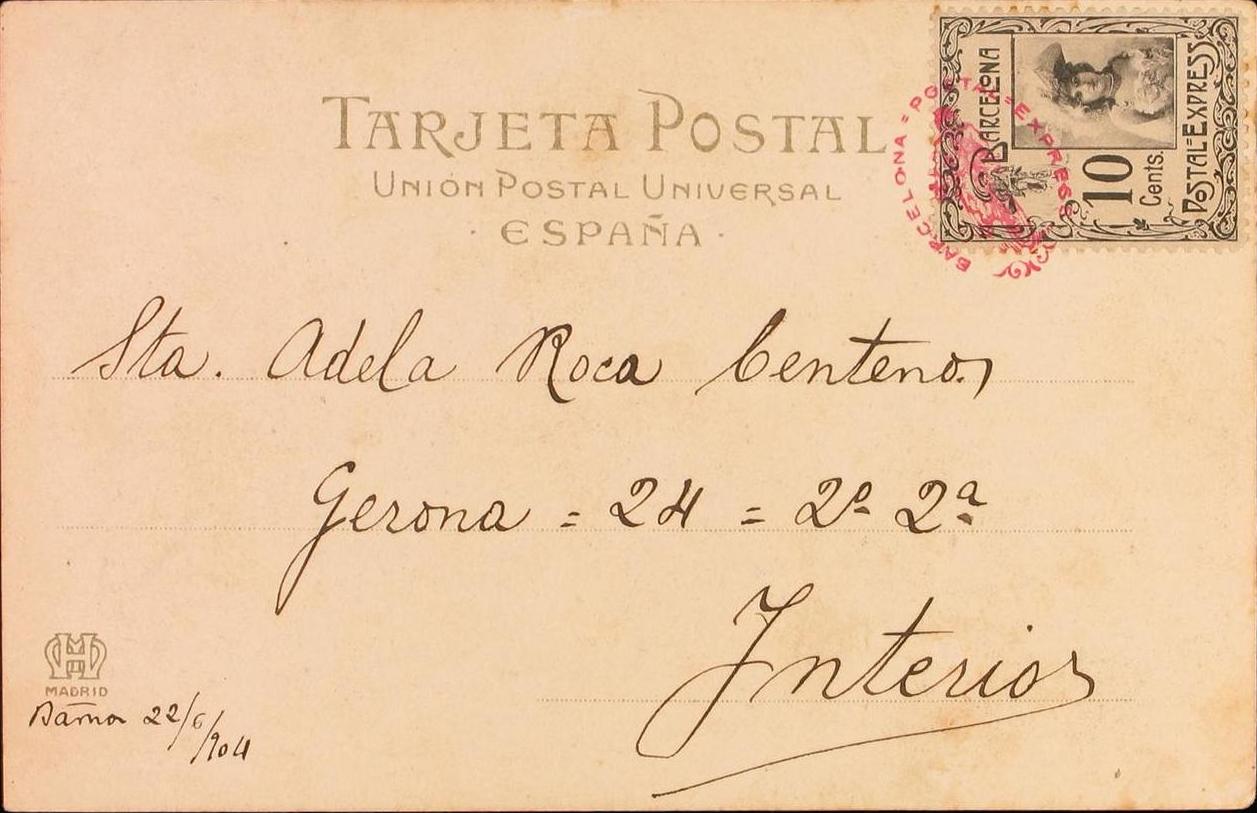 TARJETA POSTAL
UNIÓN POSTAL UNIVERSAL
· ESPAÑA ·
BARCELONA
10
Cents.
POSTAL=EXPRESS
BARCELONA = POSTAL "EXPRESS"
Sta. Adela Roca Centeno,
Gerona = 24 = 2º 2ª
Interior
MADRID
Barna 22/6/904